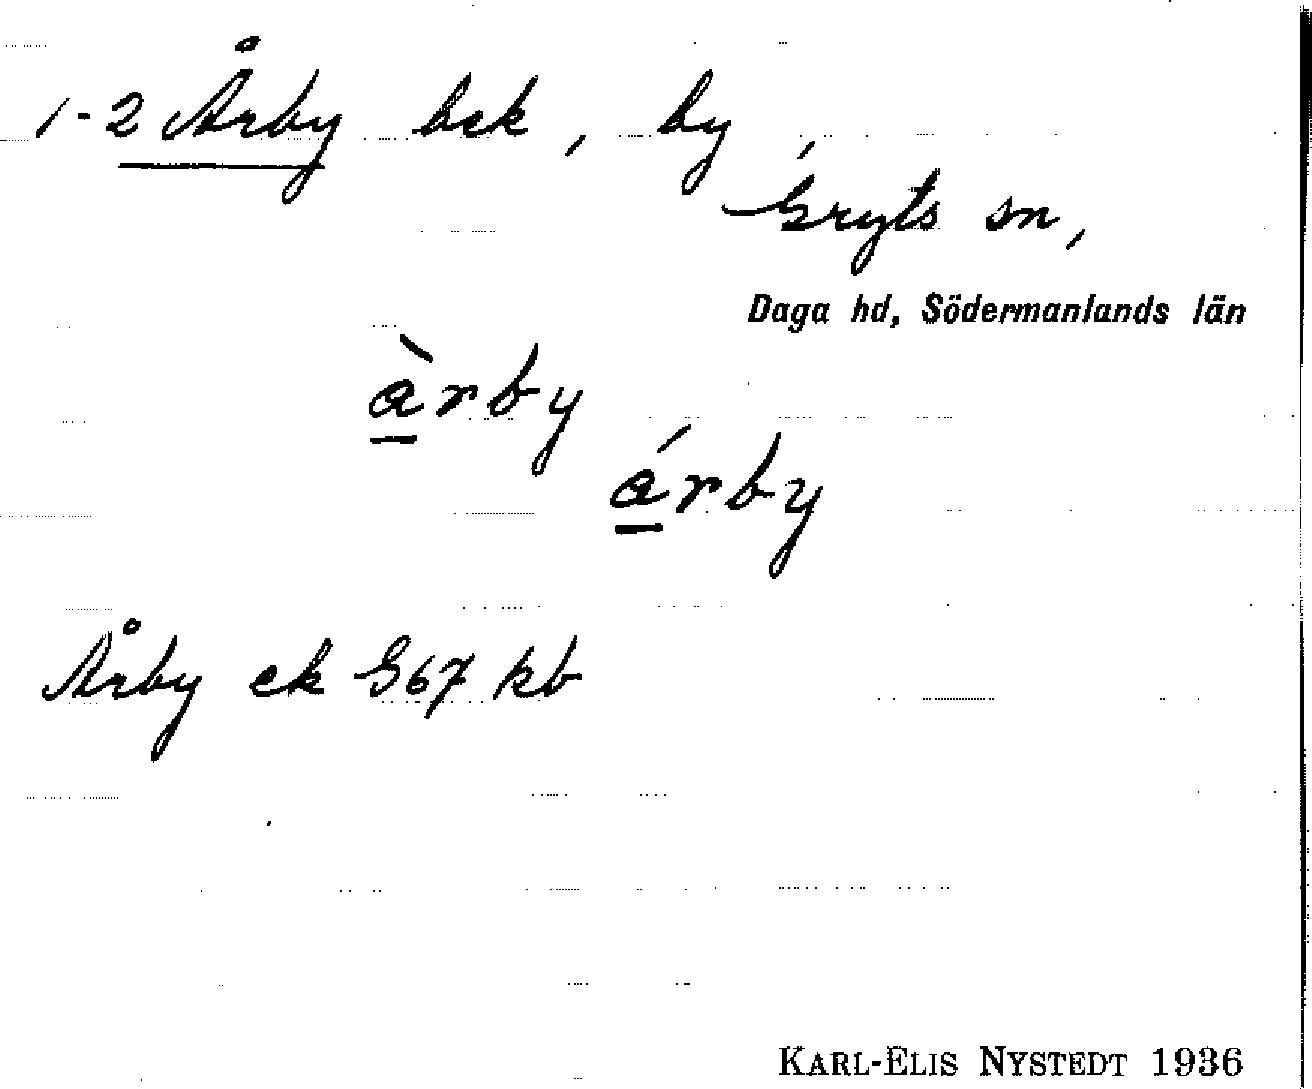 1-2 Årby bek, by
Gryts sn,
Daga hd, Södermanlands län
àrby
árby
Årby ek G67 kb
KARL-ELIS NYSTEDT 1936